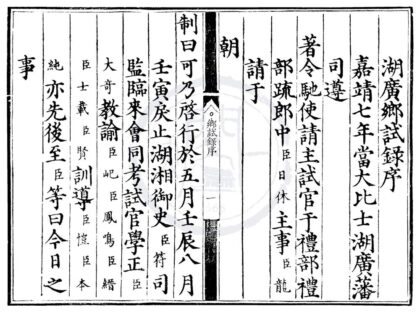 湖廣鄉試錄序
嘉靖七年當大比士湖廣藩
司遵
著令馳使請主試官于禮部禮
部疏郎中臣日休主事臣龍
請于
朝
鄉試錄序
一
制曰可乃啓行於五月壬辰八月
壬寅戾止湖湘御史臣符司
監臨來會同考試官學正臣
大奇教諭臣圯臣鳳鳴臣縉
臣士載臣賢訓導臣愷臣本
臣純亦先後至臣等曰今日之
事